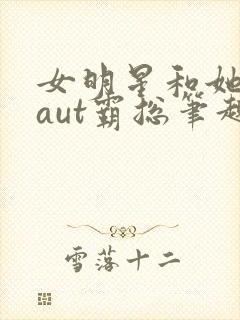 女明星和她
aut霸总笔趣
雪落十二